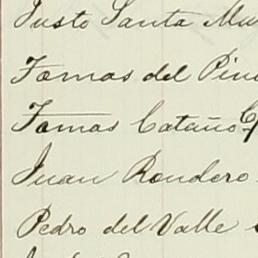 Justo Santa Ma
Tomas del Pin
Tomas Cataño
Juan Rondero
Pedro del Valle